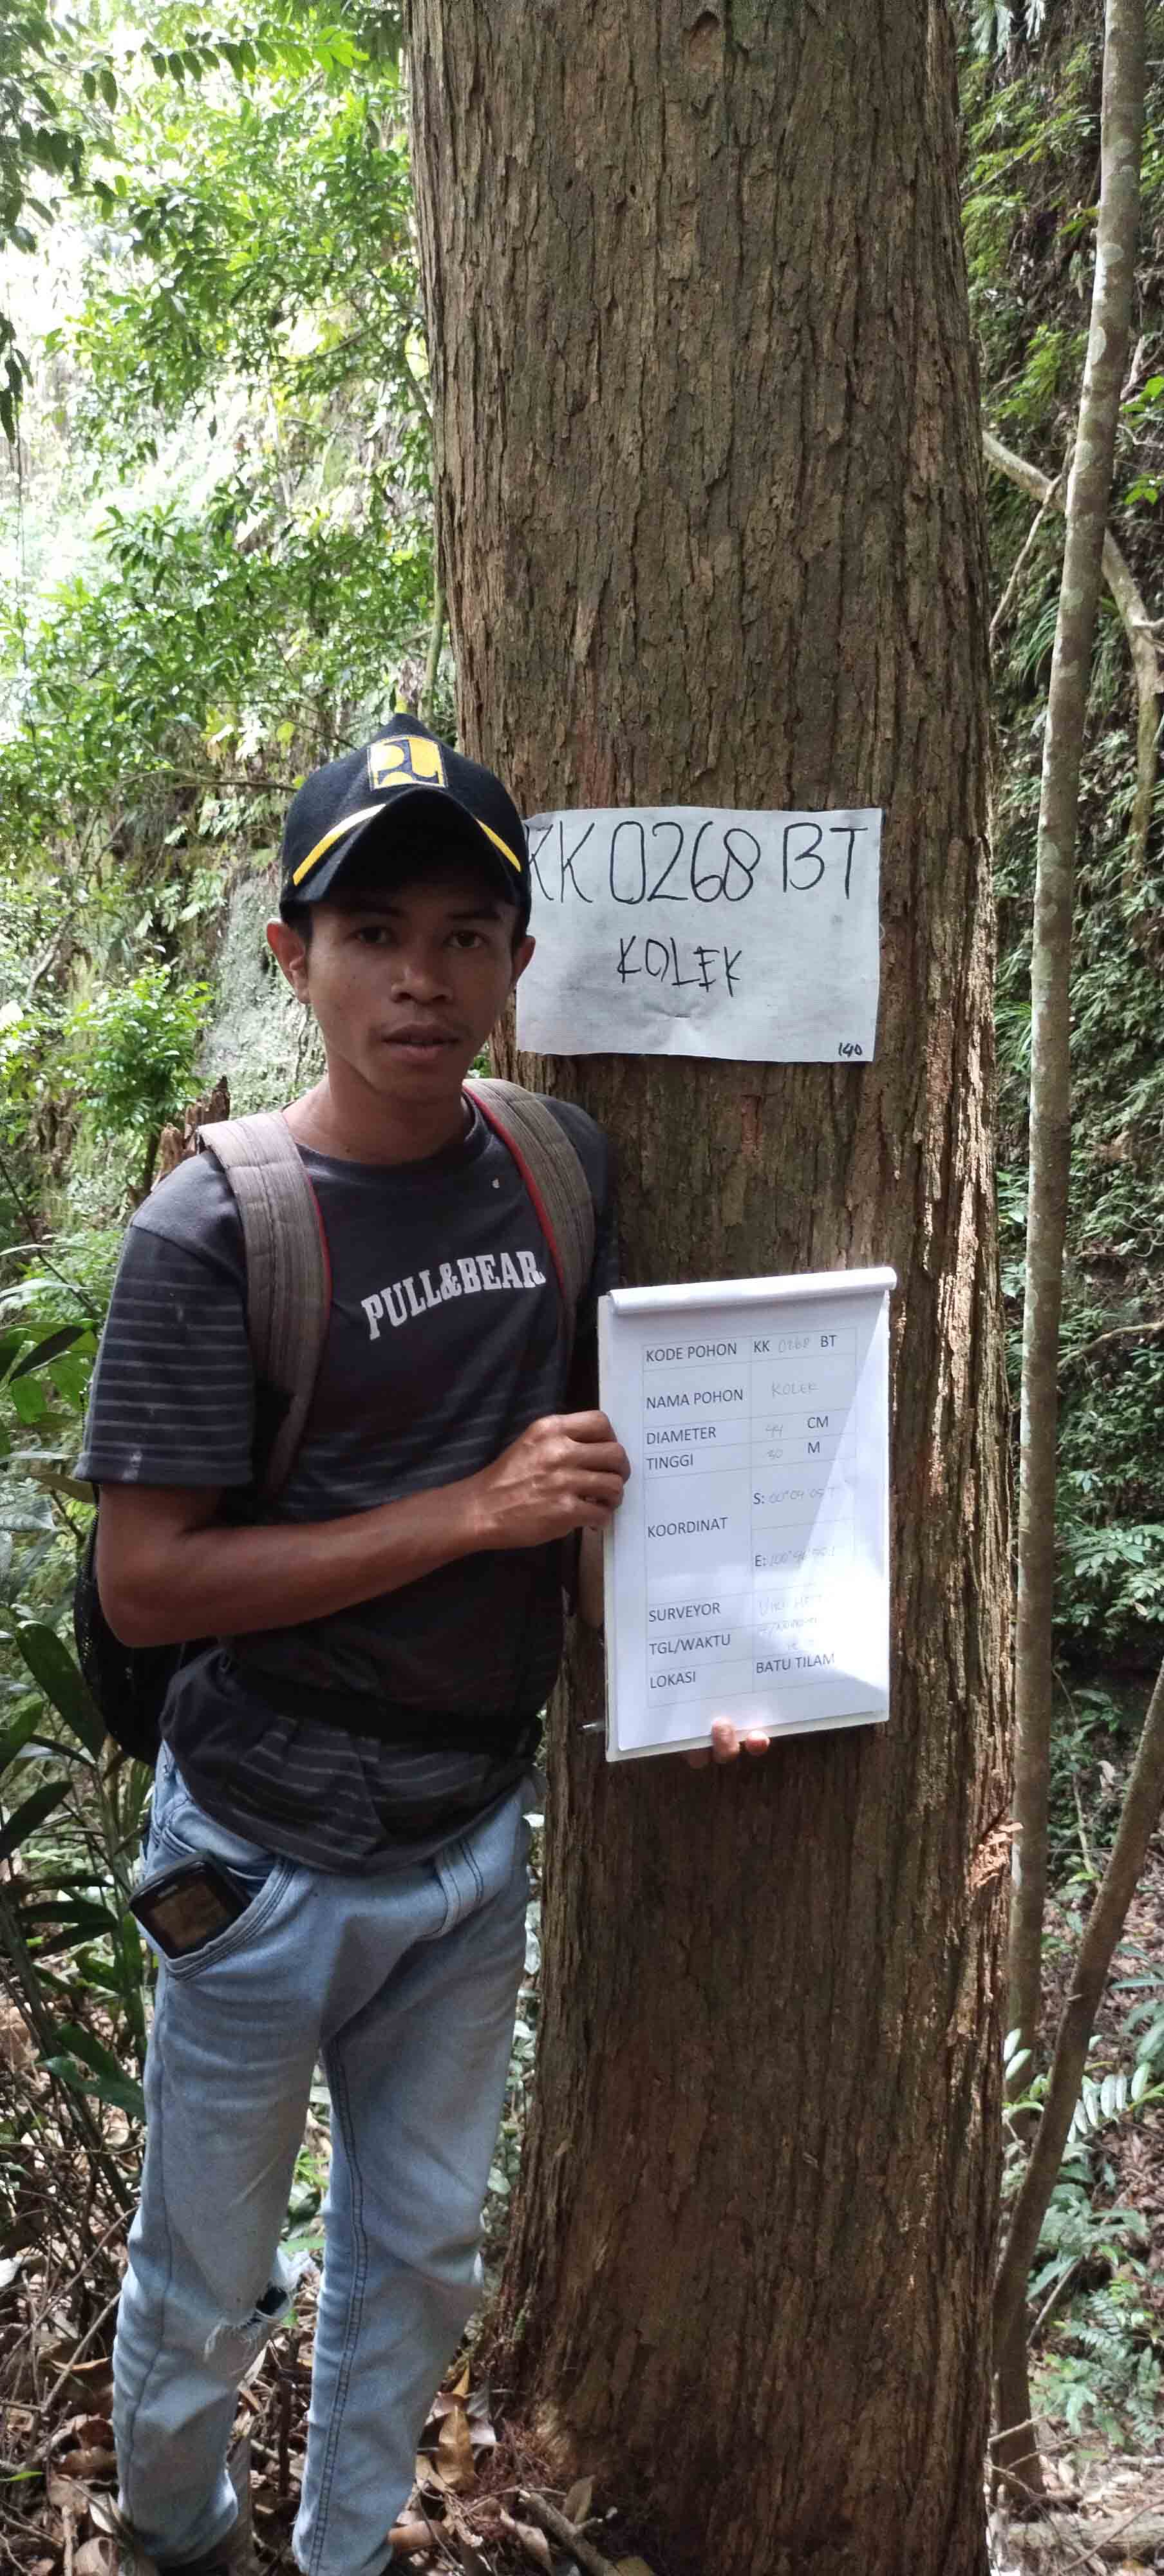 KK 0268 BT
KOLEK
140
PULL&BEAR
KODE POHON KK 0268 BT
NAMA POHON KOLEK
DIAMETER 44 CM
TINGGI 30 M
KOORDINAT
S:
E:
SURVEYOR
TGL/WAKTU
LOKASI BATU TILAM